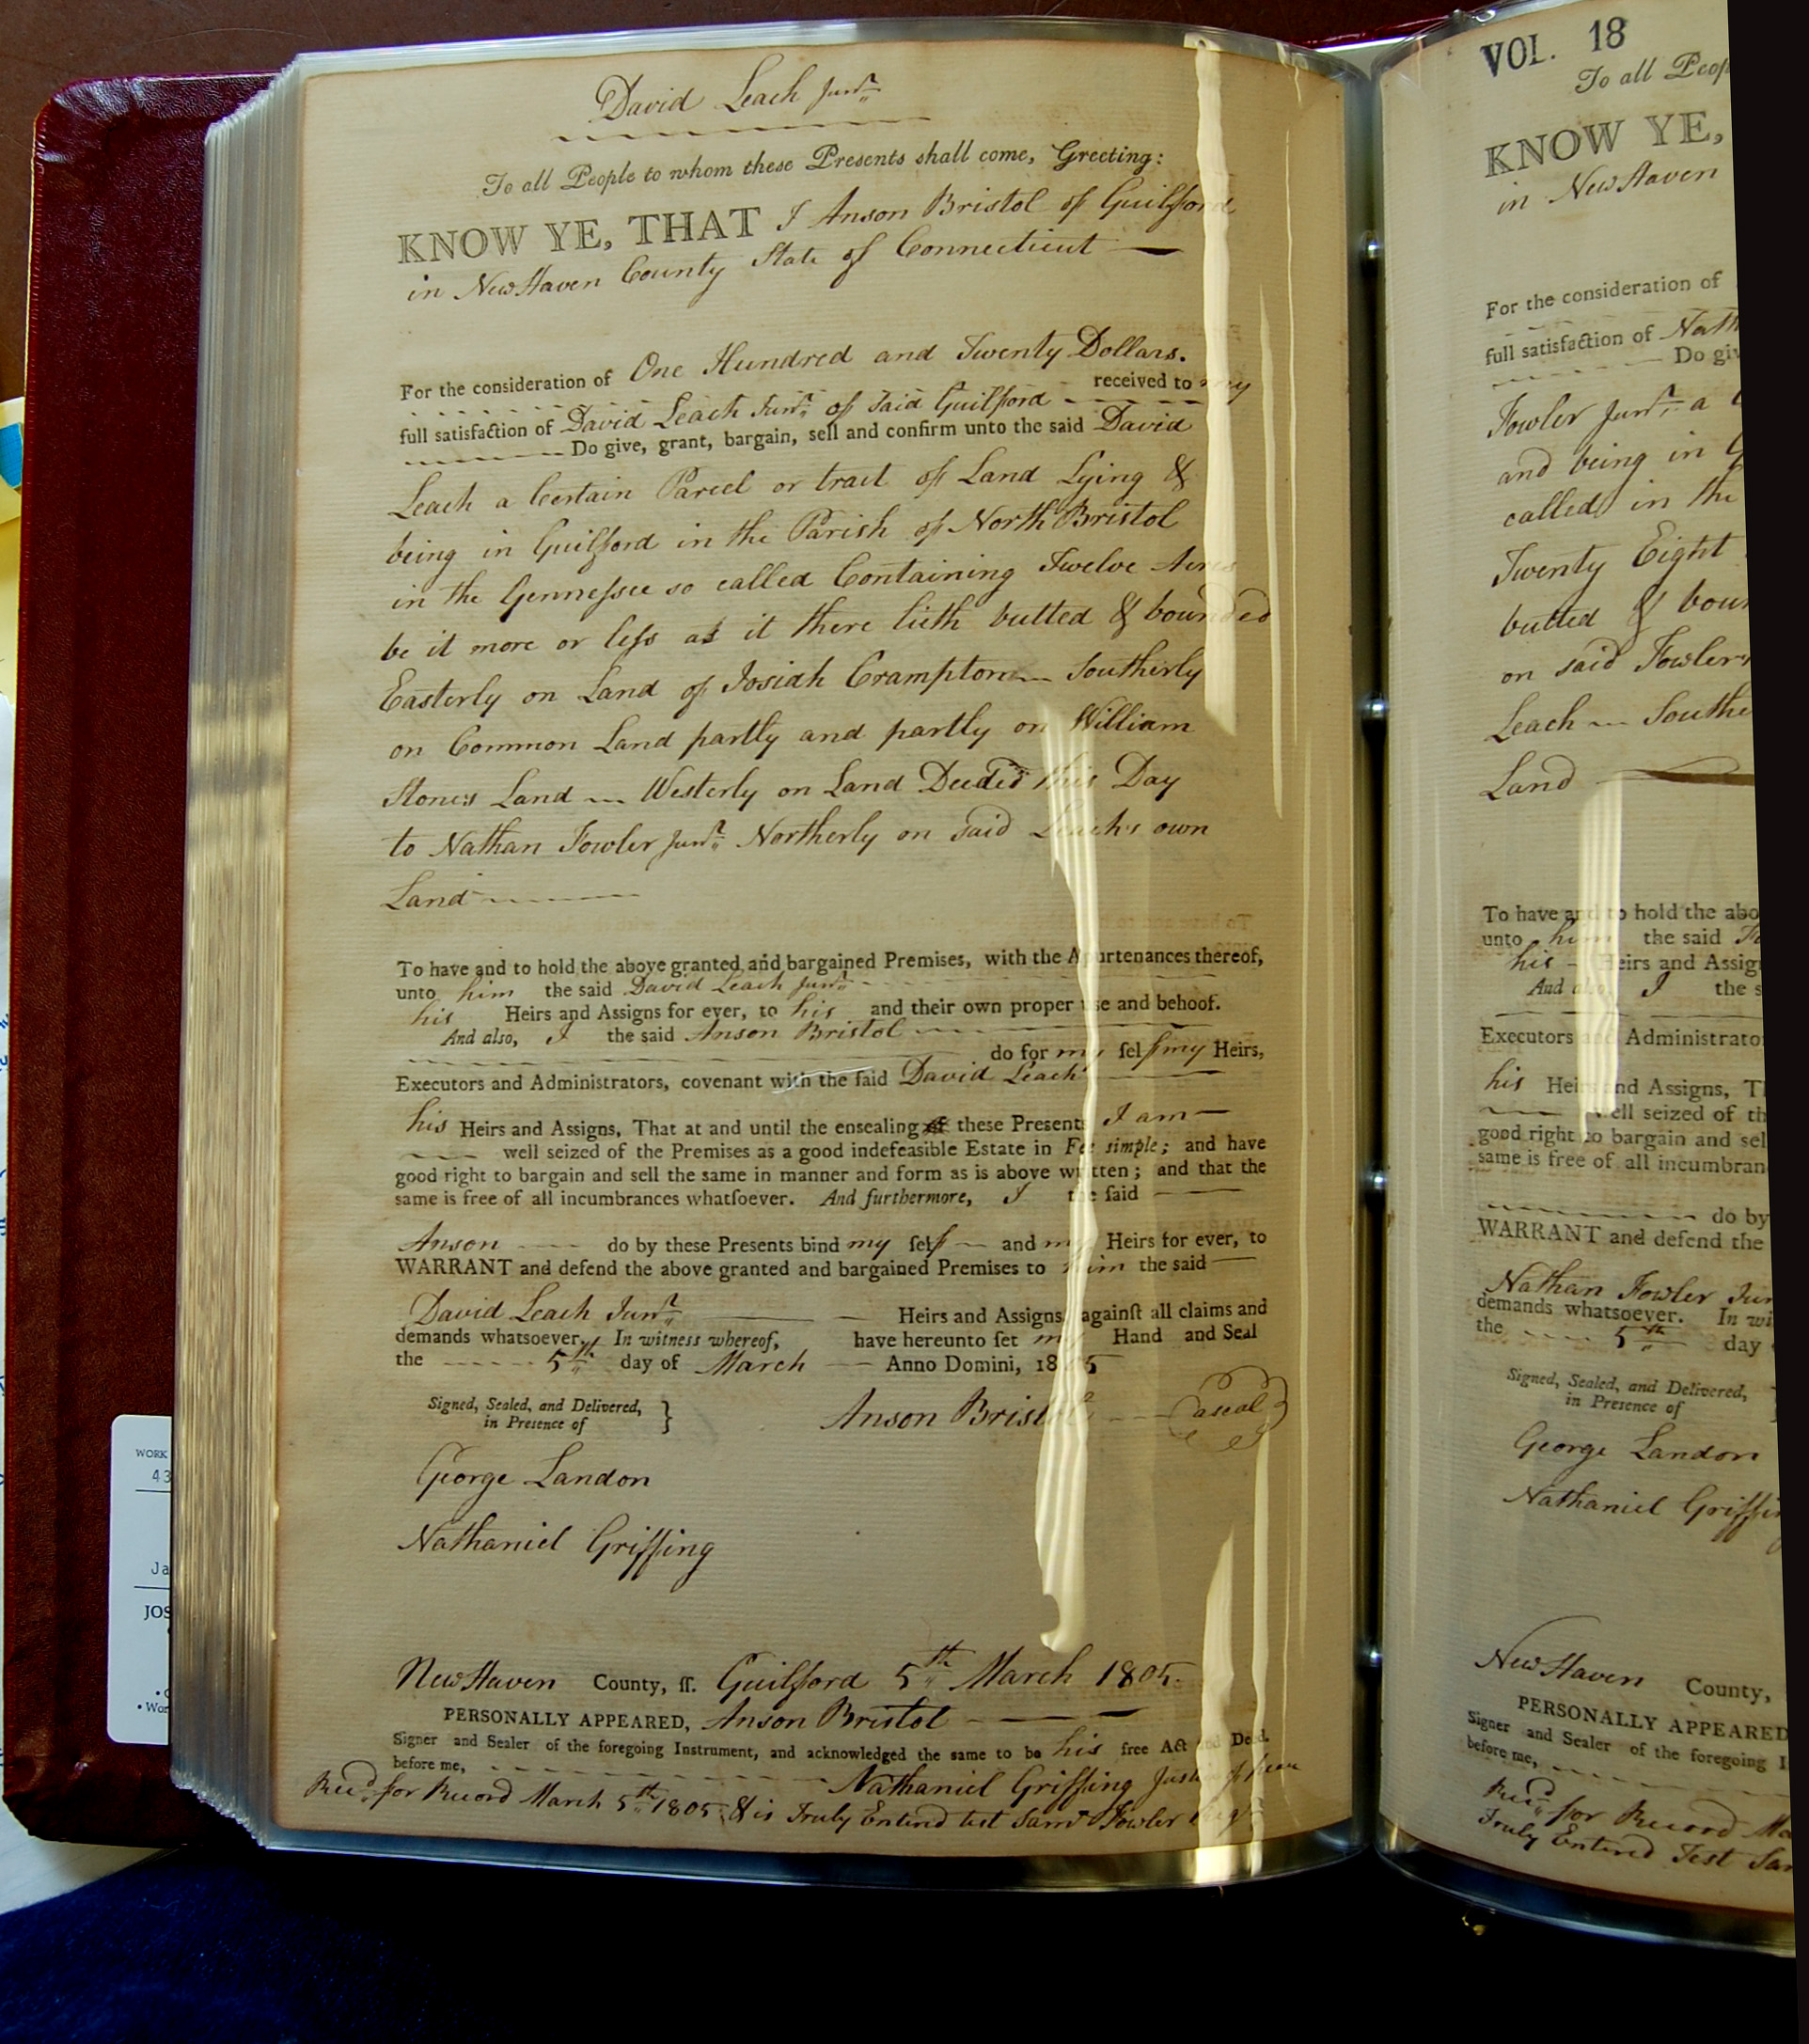 David Leach Junr.
To all People to whom these Presents shall come, Greeting:
KNOW YE, THAT I Anson Bristol of Guilford
in New Haven County State of Connecticut
For the consideration of One Hundred and Twenty Dollars.
received to my
full satisfaction of David Leach Junr. of said Guilford
Do give, grant, bargain, sell and confirm unto the said David
Leach a Certain Parcel or tract of Land Lying &
being in Guilford in the Parish of North Bristol
in the Gennessee so called Containing Twelve Acres
be it more or less as it there lieth butted & bounded
Easterly on Land of Josiah Crampton Southerly
on Common Land partly and partly on William
Stones Land Westerly on Land Deeded this Day
to Nathan Fowler Junr. Northerly on said Leach's own
Land
To have and to hold the above granted and bargained Premises, with the Apurtenances thereof,
unto him the said David Leach Junr.
his Heirs and Assigns for ever, to his and their own proper use and behoof.
And also, I the said Anson Bristol
do for my self my Heirs,
Executors and Administrators, covenant with the said David Leach
his Heirs and Assigns, That at and until the ensealing of these Presents I am
well seized of the Premises as a good indefeasible Estate in Fee simple; and have
good right to bargain and sell the same in manner and form as is above written; and that the
same is free of all incumbrances whatsoever. And furthermore, I the said
Anson do by these Presents bind my self and my Heirs for ever, to
WARRANT and defend the above granted and bargained Premises to him the said
David Leach Junr. Heirs and Assigns against all claims and
demands whatsoever. In witness whereof, have hereunto set my Hand and Seal
the 5th day of March Anno Domini, 1805
Signed, Sealed, and Delivered,
in Presence of } Anson Bristol a seal
George Landon
Nathaniel Griffing
New Haven County, ss. Guilford 5th March 1805.
PERSONALLY APPEARED, Anson Bristol
Signer and Sealer of the foregoing Instrument, and acknowledged the same to be his free Act and Deed.
before me, Nathaniel Griffing Justice of peace
Recd. for Record March 5th 1805. & is Truly Entered test Saml. Fowler Regr.
VOL. 18
To all Peop
KNOW YE,
in New Haven
For the consideration of
full satisfaction of Nath
Do giv
Fowler Junr. a
and being in G
called in the
Twenty Eight
butted & boun
on said Fowlers
Leach Southe
Land
To have and to hold the abo
unto him the said
his Heirs and Assig
And also, I the s
Executors and Administrato
his Heirs and Assigns, T
well seized of th
good right to bargain and sel
same is free of all incumbran
do by
WARRANT and defend the
Nathan Fowler Jun
demands whatsoever. In wi
the 5th day
Signed, Sealed, and Delivered,
in Presence of
George Landon
Nathaniel Griffin
New Haven County,
PERSONALLY APPEARED
Signer and Sealer of the foregoing I
before me,
Recd. for Record Ma
Truly Entered Test Sam
WORK
43
Ja
JOS
• Wor